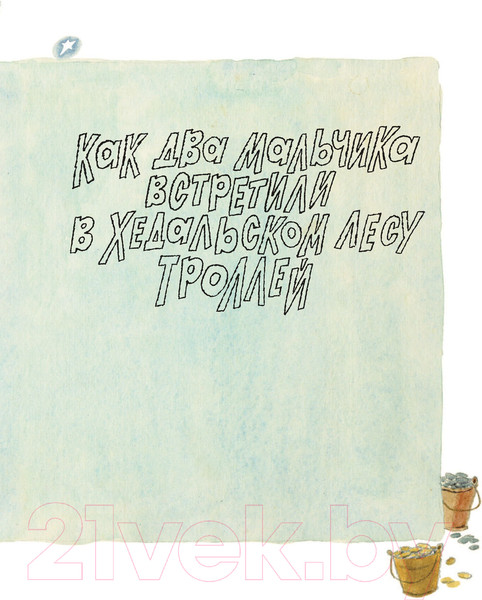 Как два мальчика
встретили
в Хедальском лесу
троллей
21vek.by